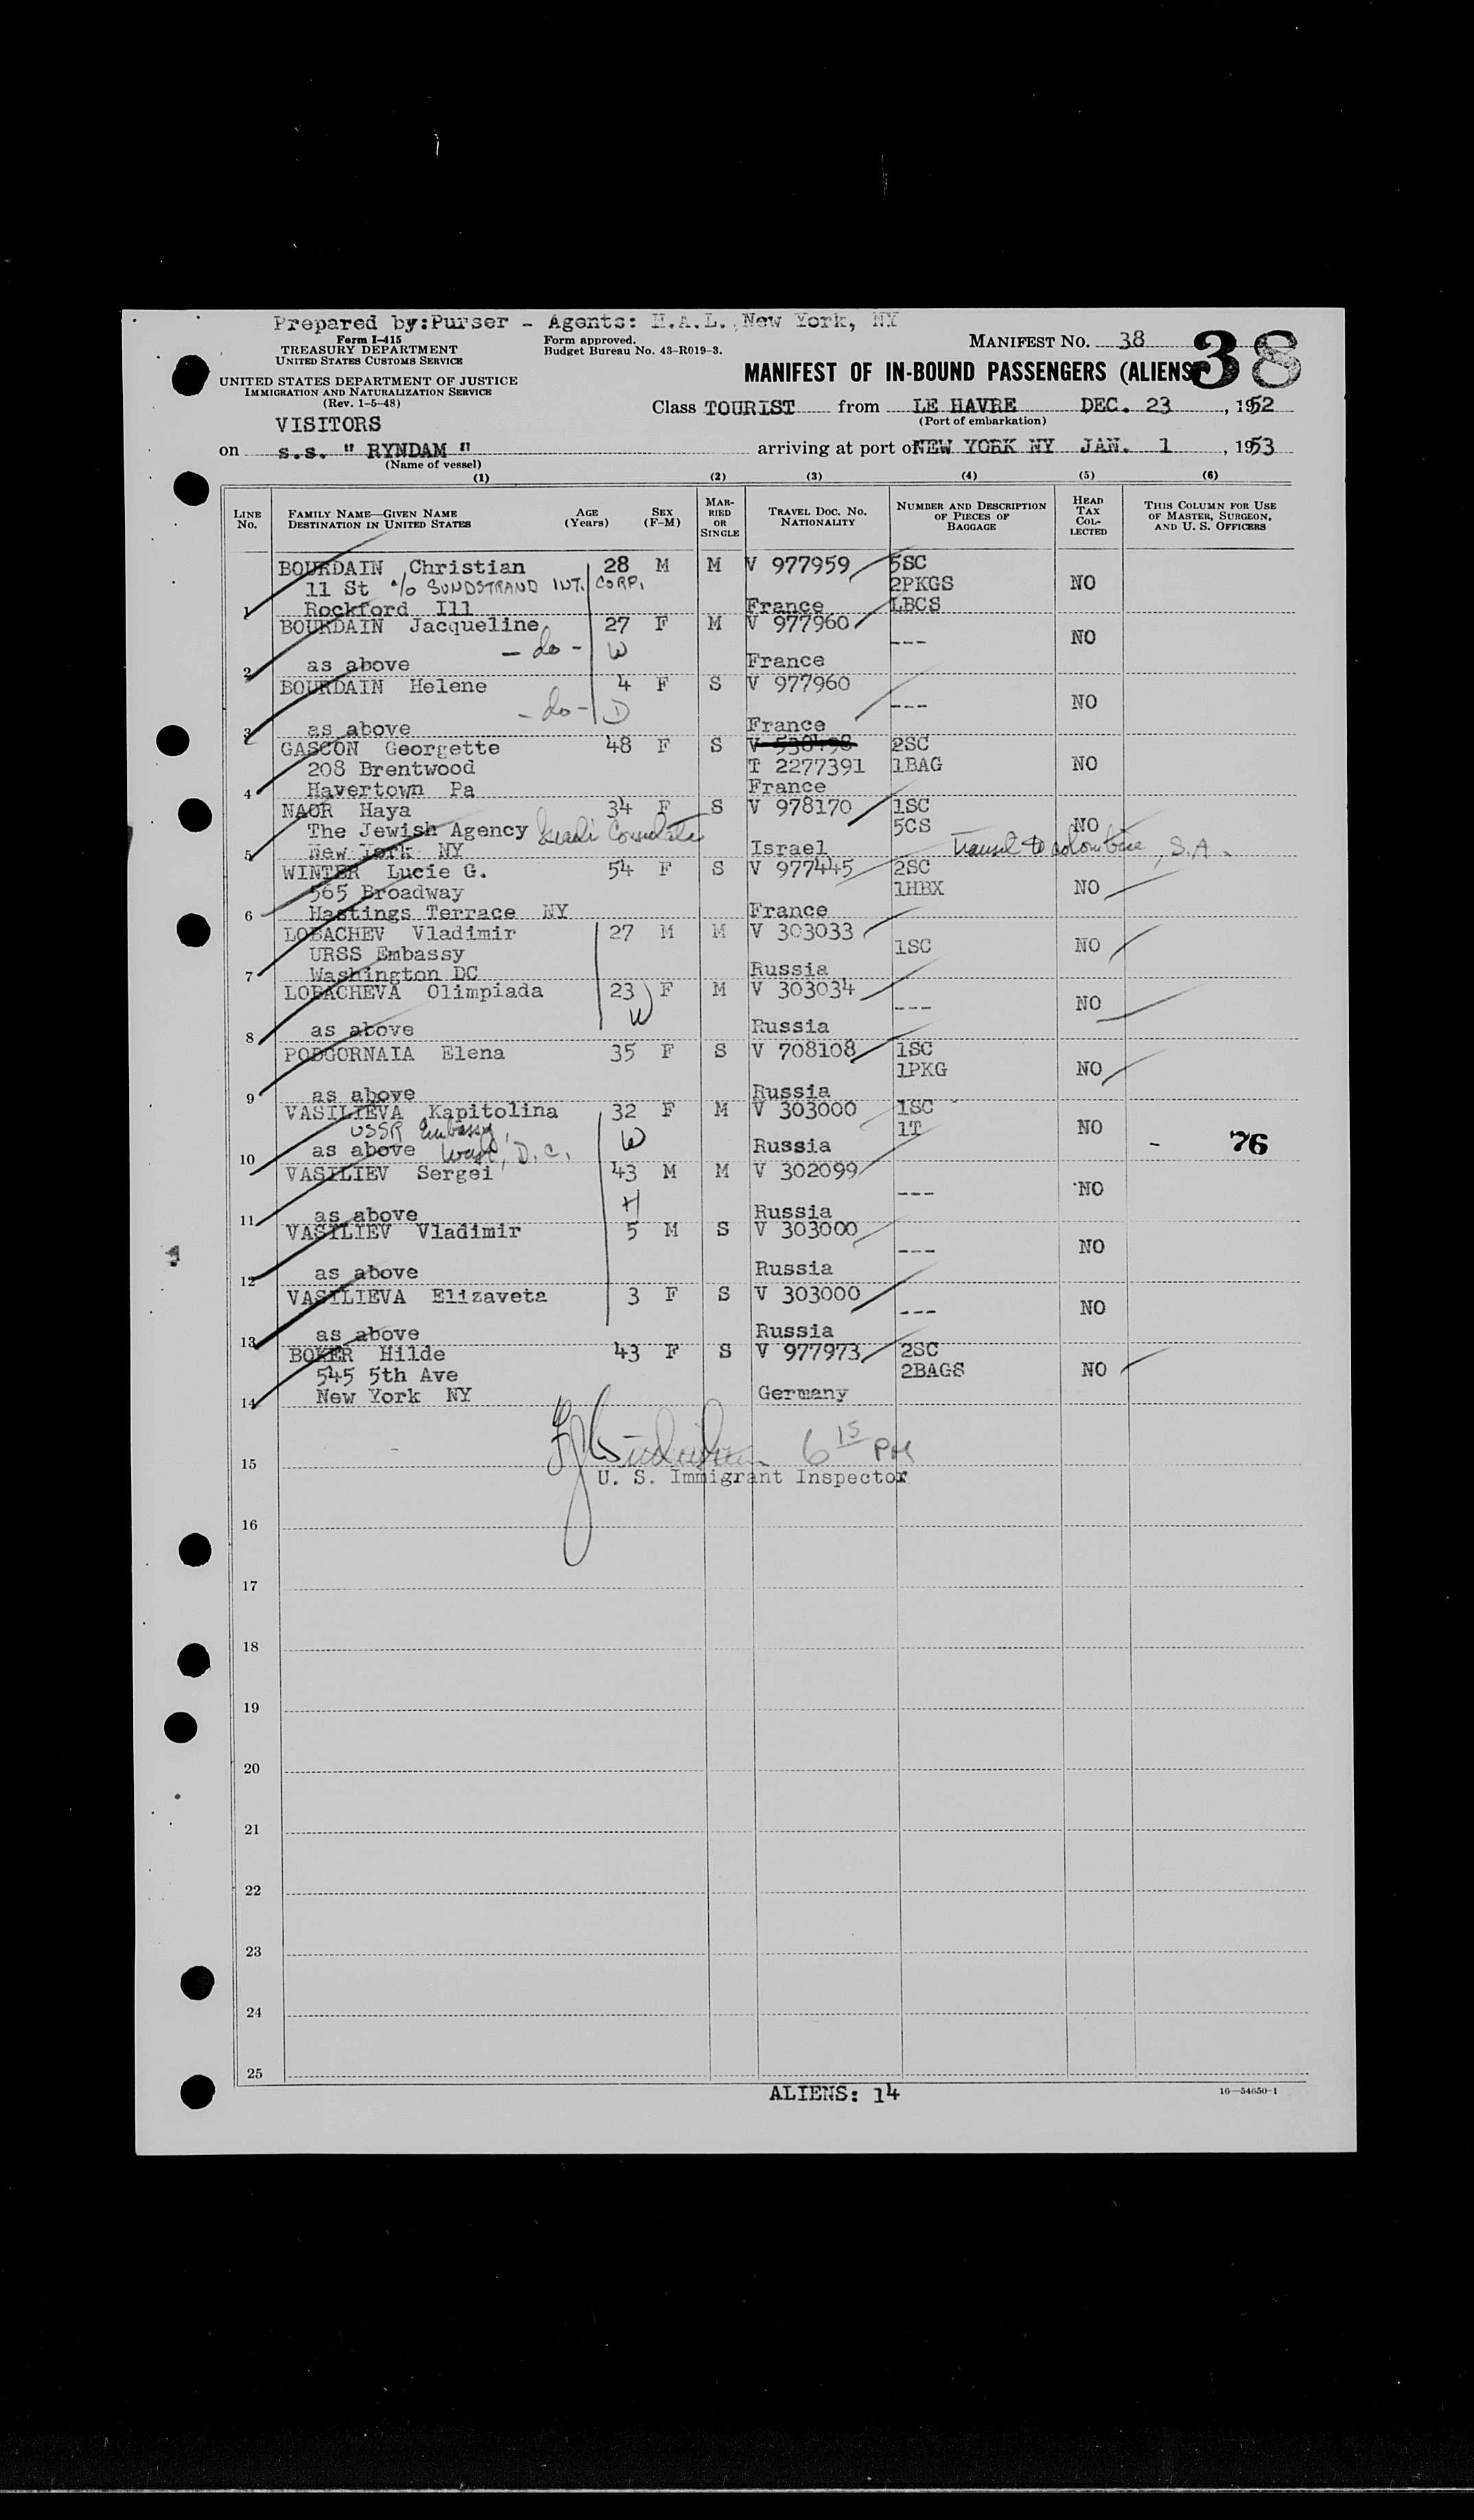 Prepared by:Purser - Agents: H.A.L. New York, NY
Form I-415
TREASURY DEPARTMENT
UNITED STATES CUSTOMS SERVICE
Form approved.
Budget Bureau No. 43-R019-3.
MANIFEST NO. 38
38
UNITED STATES DEPARTMENT OF JUSTICE
IMMIGRATION AND NATURALIZATION SERVICE
(Rev. 1-5-48)
MANIFEST OF IN-BOUND PASSENGERS (ALIENS)
VISITORS
Class TOURIST from LE HAVRE DEC. 23, 1952
(Port of embarkation)
on s.s. " RYNDAM " arriving at port of NEW YORK NY JAN. 1, 1953
(Name of vessel)
(1) (2) (3) (4) (5) (6)
LINE NO. FAMILY NAME—GIVEN NAME DESTINATION IN UNITED STATES AGE (Years) SEX (F-M) MARRIED OR SINGLE TRAVEL DOC. NO. NATIONALITY NUMBER AND DESCRIPTION OF PIECES OF BAGGAGE HEAD TAX COLLECTED THIS COLUMN FOR USE OF MASTER, SURGEON, AND U. S. OFFICERS
BOURDAIN Christian 28 M M V 977959 5SC
11 St c/o SUNDSTRAND INT. CORP. 2PKGS NO
1 Rockford Ill France LBCS
BOURDAIN Jacqueline 27 F M V 977960
- do - W --- NO
2 as above France
BOURDAIN Helene 4 F S V 977960
- do - D --- NO
3 as above France
GASCON Georgette 48 F S V 538498 2SC
208 Brentwood T 2277391 1BAG NO
4 Havertown Pa France
NAOR Haya 34 F S V 978170 1SC
The Jewish Agency Israeli Consulate 5CS NO
5 New York NY Israel Transit to Colombia, S.A.
WINTER Lucie G. 54 F S V 977445 2SC
565 Broadway 1HBX NO
6 Hastings Terrace NY France
LOBACHEV Vladimir 27 M M V 303033
URSS Embassy 1SC NO
7 Washington DC Russia
LOBACHEVA Olimpiada 23 F M V 303034
W --- NO
8 as above Russia
PODGORNAIA Elena 35 F S V 708108 1SC
1PKG NO
9 as above Russia
VASILIEVA Kapitolina 32 F M V 303000 1SC
USSR Embassy, W 1T NO
10 as above Wash, D.C. Russia - 76
VASILIEV Sergei 43 M M V 302099
H --- NO
11 as above Russia
VASILIEV Vladimir 5 M S V 303000
--- NO
12 as above Russia
VASILIEVA Elizaveta 3 F S V 303000
--- NO
13 as above Russia
BOKER Hilde 43 F S V 977973 2SC
545 5th Ave 2BAGS NO
14 New York NY Germany
6 15 PM
15
U. S. Immigrant Inspector
16
17
18
19
20
21
22
23
24
25
ALIENS: 14
16—54650-1